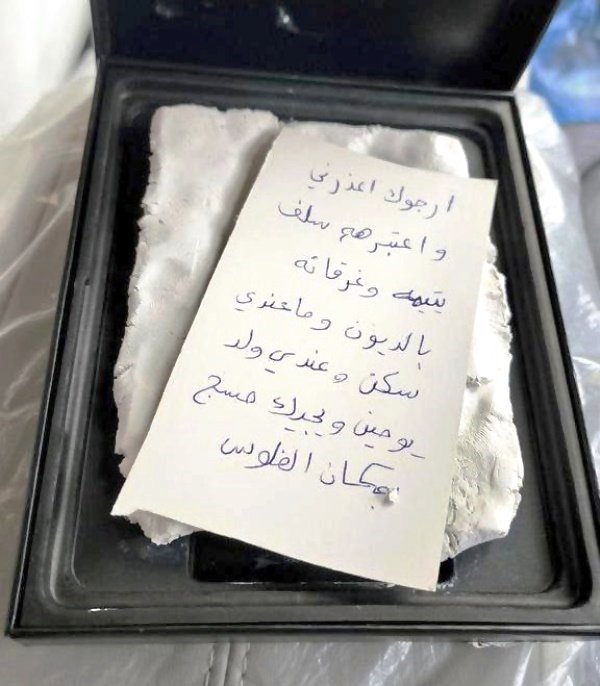 ارجوك اعذرني
واعتبرهه سلف
يتيمه وغرقانه
بالديون وماعندي
سكن وعندي ولد
يومين ويجيك مسج
بمكان الفلوس